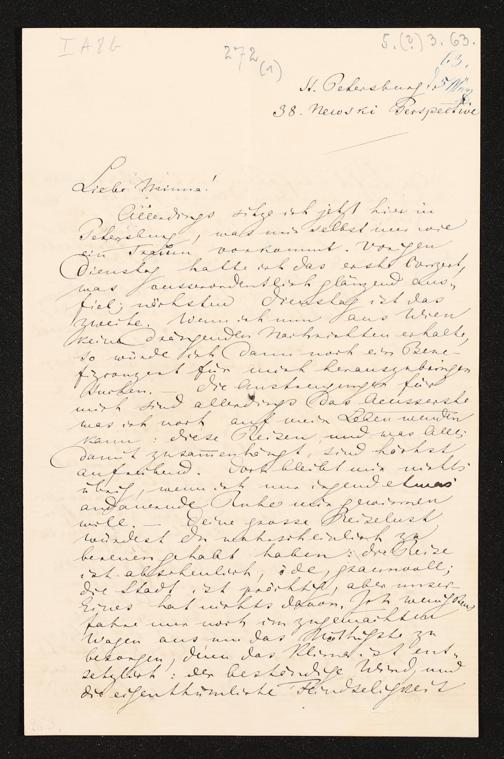 I A 8 b
272
(1)
5. (?) 3. 63.
63.
5 März
St. Petersburg
38. Newski Perspective
Liebe Minna!
Allerdings sitze ich jetzt hier in
Petersburg, was mir selbst nur wie
ein Traum vorkommt. Vorigen
Dienstag hatte ich das erste Concert,
was ausserordentlich glänzend aus-
fiel; nächsten Dienstag ist das
zweite. Wenn ich nun aus Wien
keine drängenden Nachrichten erhalte,
so würde ich dann noch ein Bene-
fizconzert für mich herauszubringen
suchen. Die Anstrengungen für
mich sind allerdings das Aeusserste
was ich noch auf mein Leben wenden
kann: diese Reisen, und was Alles
damit zusammenhängt, sind höchst
aufreibend. Doch bleibt mir nichts
übrig, wenn ich nur irgend etwas
andauernde Ruhe mir gewinnen
will. — Deine grosse Reiselust
würdest Du wahrscheinlich zu
bereuen gehabt haben: die Reise
ist abscheulich, öde, grauenvoll;
die Stadt ist prächtig, aber unser
Eines hat nichts davon. Ich wenigstens
fahre nur noch im zugemachten
Wagen aus um das Nöthigste zu
besorgen, denn das Klima ist ent-
setzlich: der beständige Wind, und
die eigenthümliche Feindseligkeit